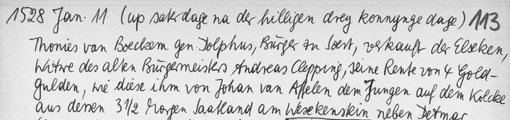 1528 Jan. 11 (up saterdage na der hilligen drey konnynge dage) 113
Thonies van Boeckem gen Dolphus, Bürger zu Soest, verkauft der Elseken,
Witwe des alten Bürgermeisters Andreas Clepping, seine Rente von 4 Gold-
gulden, wie diese ihm von Johan van Affelen dem Jungen auf dem Kolcke
aus dessen 3 1/2 Morgen Saatland am Wesekenstein neben Detmar